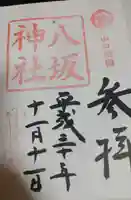 参拝
八坂神社
平成三十年
十一月十一日